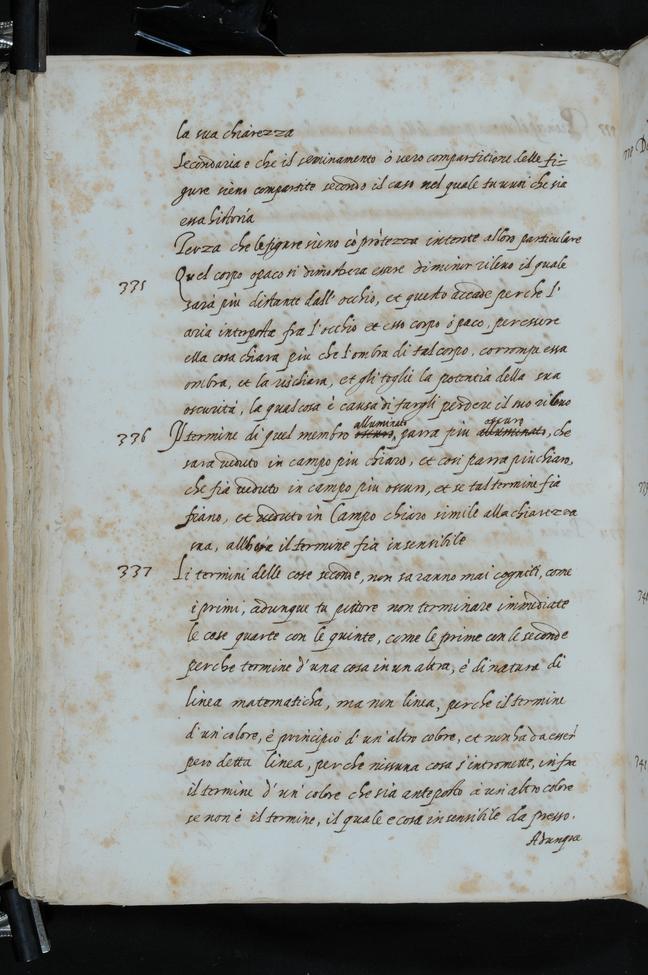 la sua chiarezza
Secondaria e che il seminamento ò vero compartitione delle fi=
gure sieno compartite secondo il caso nel quale tu vuoi che sia
essa historia
Terza che le figure sieno cò pròtezza intente alloro particulare
335 Quel corpo opaco si dimostrera essere di minor rilevo il quale
sarà piu distante dall' occhio, et questo accade perche l'
aria interposta fra l'occhio et esso corpo ópaco, per essere
ella cosa chiara piu che l'ombra di tal corpo, corrompe essa
ombra, et la rischiara, et gli toglie la potentia della sua
oscurità, la qual cosa è causa di fargli perdere il suo rilevo
336 Il termine di quel membro alluminato parra piu oscuro, che
sara veduto in campo piu chiaro, et cosi parra piu chiaro,
che fia veduto in campo piu oscuro, et se tal termine fia
piano, et veduto in Campo chiaro simile alla chiarezza
sua, allhora il termine fia insensibile
337 Li termini delle cose seconde, non saranno mai cogniti, come
i primi, adunque tu pittore non terminare immediate
le cose quarte con le quinte, come le prime con le seconde
perche termine d'una cosa in un altra, è di natura di
linea matematicha, ma non linea, perche il termine
d'un colore, è principio d'un'altro colore, et non ha da esser
pero detta linea, perche nissuna cosa s'intromette, infra
il termine d'un' colore che sia anteposto a un'altro colore
se non è il termine, il quale e cosa insensibile da presso.
Adunque